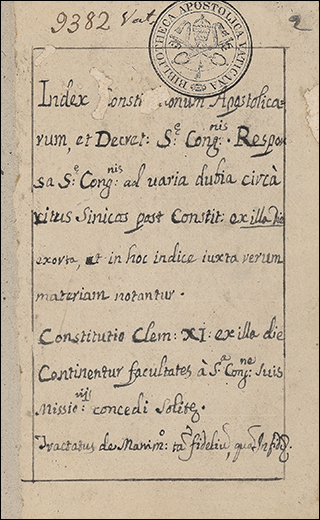 9382 Vat
2
BIBLIOTHECA APOSTOLICA VATICANA
Index Consti onum Apostolica-
rum, et Decret: S.e Cong.nis Respon
sa S.e Cong.nis ad varia dubia circà
ritus Sinicos post Constit: ex illa die
exorta, et in hoc indice iuxta rerum
materiam notantur.
Constitutio Clem: XI: ex illa die
Continentur facultates à S.a Cong.ne Suis
Missio.rijs concedi Solitę.
Tractatus de Matrim.o: tā fideliū, quā Infid